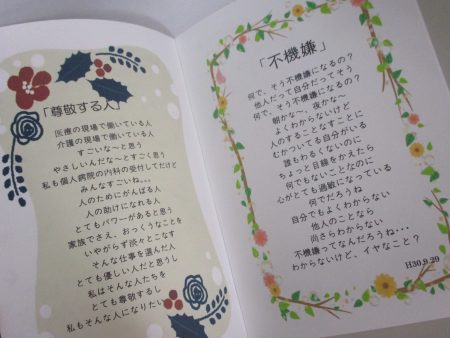 「尊敬する人」
医療の現場で働いている人
介護の現場で働いている人
すごいな～と思う
やさしいんだな～とすごく思う
私も個人病院の内科の受付してたけど
みんなすごいね。。。
人のためにがんばる人
人の助けになれる人
とてもパワーがあると思う
家族でさえ、おっくうなことを
いやがらず淡々とこなす
そんな仕事を選んだ人
とても優しい人だと思うし
私はそんな人たちを
とても尊敬するし
私もそんな人になりたい
「不機嫌」
何で、そう不機嫌になるの？
他人だって自分だってそう
何で、そう不機嫌になるの？
朝かな～、夜かな～
よくわからないけど
人のすることなすことに
むかついている自分がいる
誰もわるくないのに
ちょっと目線をかえたら
何でもないことなのに
心がとても過敏になっている
何でだろうね
自分でもよくわからない
他人のことなら
尚さらわからない
不機嫌ってなんだろうね・・・
わからないけど、イヤなこと？
H30.9.29